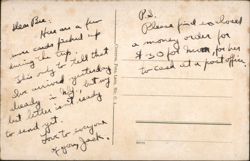 Dear Bee:
Here are a few
more cards picked up
during the trip.
This only to tell that
I've arrived yesterday
already in N.Y., but my
but letter isn't ready
to send yet.
Love to everyone
of you, Jack.
P.S.
Please find enclosed
a money order for
$30 for her
to cash at a post office.